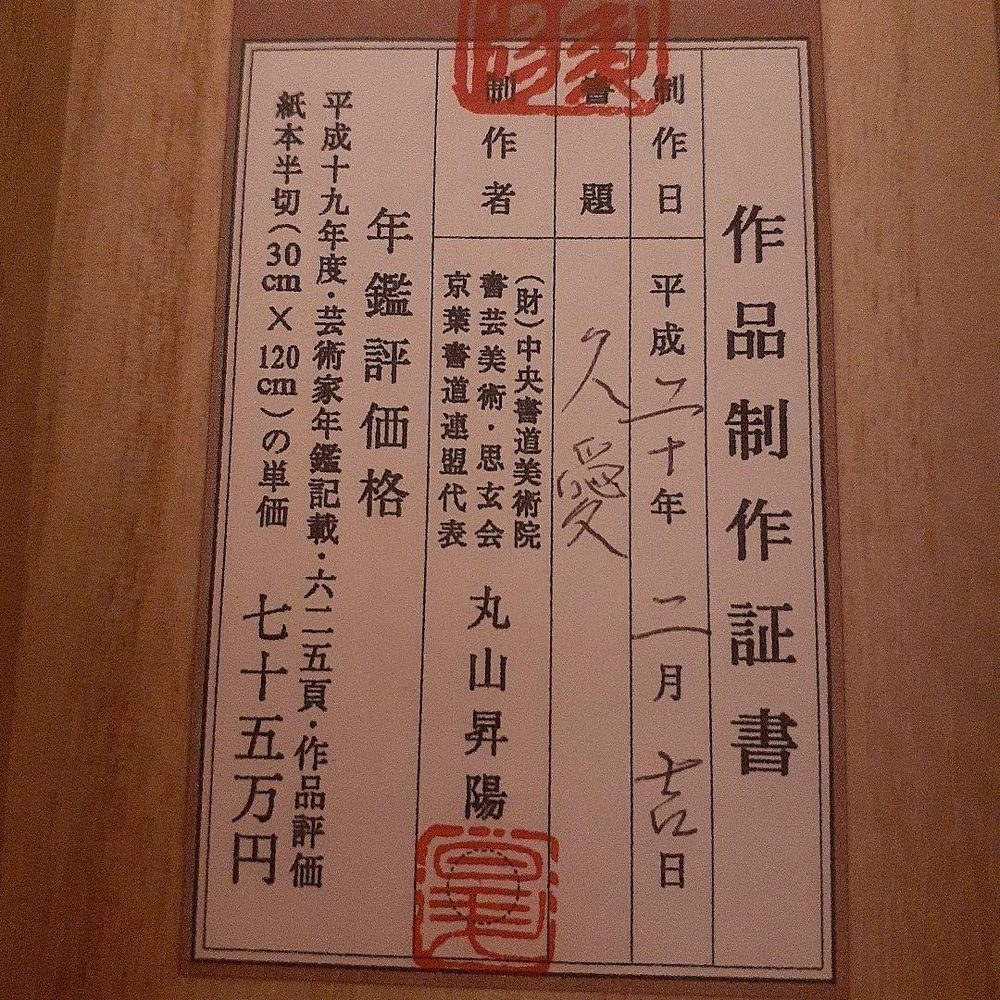 作品制作証書
制作日 平成二十年 二月 吉日
書題 久愛
制作者
(財)中央書道美術院
書芸美術・思玄会
京葉書道連盟代表
丸山昇陽
年鑑評価格
平成十九年度・芸術家年鑑記載・六二五頁・作品評価
紙本半切(30cm×120cm)の単価 七十五万円